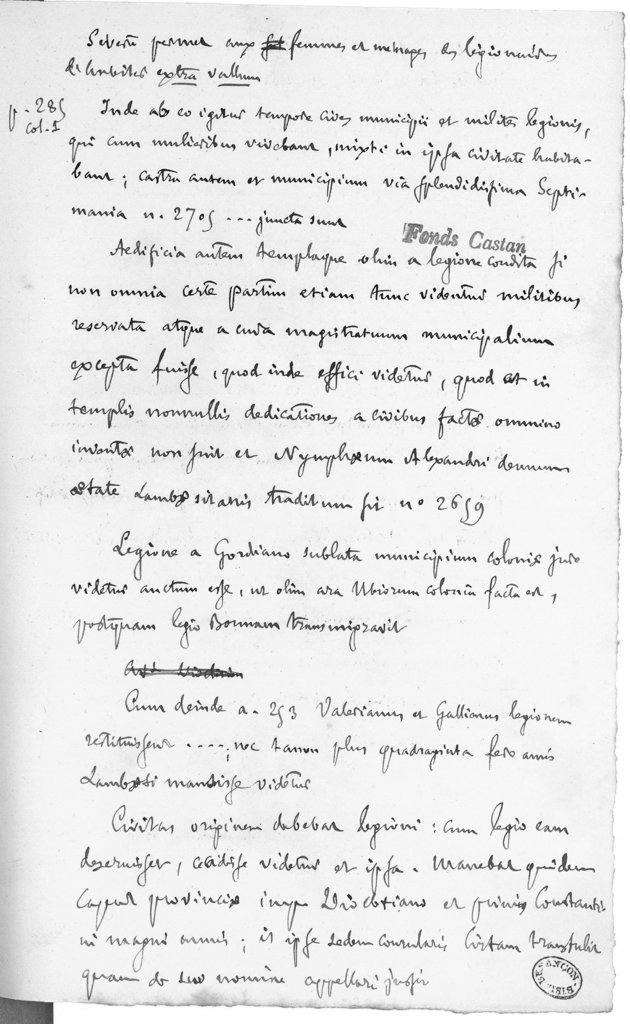 Sévère permet aux femmes et ménages des légionnaires
d'habiter extra vallum
p. 285
col. 1
Inde ab eo igitur tempore cives municipii et milites legionis,
qui cum mulieribus vivebant, mixti in ipsa civitate habita-
bant; castra autem et municipium via splendidissima Septi-
miana n. 2705 ... juncta sunt
Fonds Castan
Aedificia autem templaque olim a legione condita si
non omnia certe partim etiam tunc videntur militibus
reservata atque a cura magistratuum municipalium
excepta fuisse, quod inde effici videtur, quod et in
templis nonnullis dedicationes a civibus factæ omnino
inventæ non sint et Nymphæum Alexandri demum
ætate Lambæsitanis traditum sit no 2659
Legione a Gordiano sublata municipium coloniæ jure
videtur auctum esse, ut olim ara Ubiorum colonia facta est,
postquam legio Bonnam transmigravit
Cum deinde a. 253 Valerianus et Gallienus legionem
restituissent ....; nec tamen plus quadraginta fere annis
Lambæsi mansisse videtur
Civitas originem debebat legioni: cum legio eam
deseruisset, cecidisse videtur et ipsa. Manebat quidem
caput provinciæ imp. Diocletiano et primis Constanti-
ni magni annis; is ipse sedem consularis Cirtam transtulit
quam de suo nomine appellari jussit
BIBL. BESANÇON